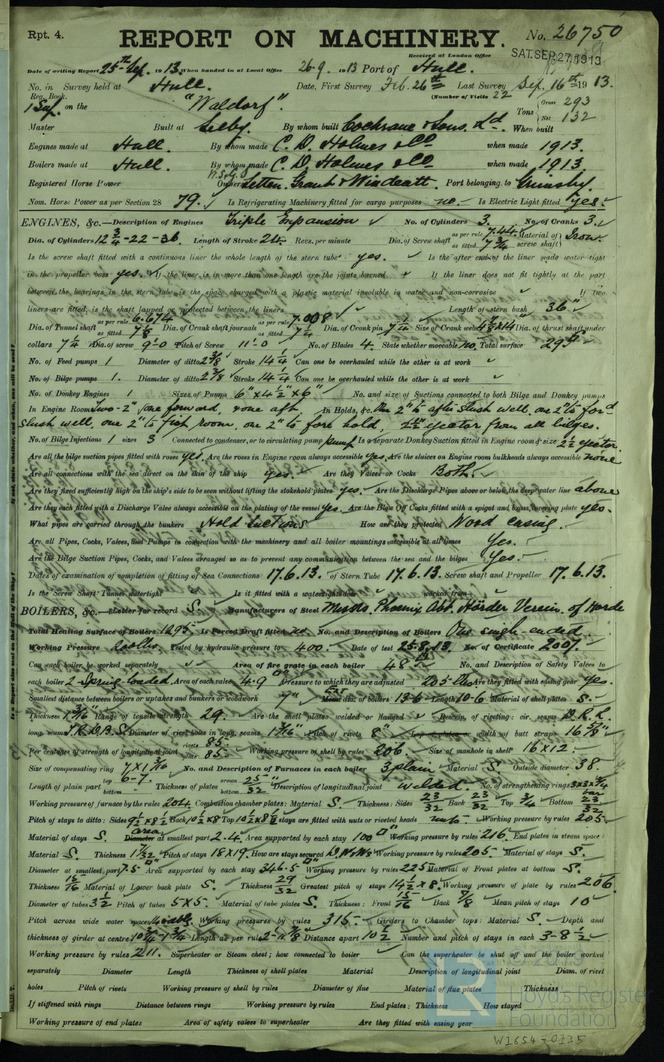 Rpt. 4.
REPORT ON MACHINERY.
No. 26750
Received at London Office
SAT. SEP. 27 1913
Date of writing Report 25th Sep. 1913 When handed in at Local Office 26.9.1913 Port of Hull.
No. in Reg. Book. Survey held at Hull. Date, First Survey Feb. 26th Last Survey Sep. 16th 1913.
(Number of Visits 22
on the "Waldorf" Tons Gross 293 Net 132
Master Built at Selby By whom built Cochrane & Sons, Ld. When built
Engines made at Hull. By whom made C. D. Holmes & Co when made 1913.
Boilers made at Hull. By whom made C. D. Holmes & Co when made 1913
Registered Horse Power Owners Letten, Grant & Windeatt. Port belonging to Grimsby.
Nom. Horse Power as per Section 28 79. Is Refrigerating Machinery fitted for cargo purposes no. Is Electric Light fitted yes.
ENGINES, &c.—Description of Engines Triple Expansion No. of Cylinders 3. No. of Cranks 3.
Dia. of Cylinders 12 3/4 - 22 - 36. Length of Stroke 24. Revs. per minute Dia. of Screw shaft as per rule 7.44 as fitted 7 3/4 Material of screw shaft Iron.
Is the screw shaft fitted with a continuous liner the whole length of the stern tube yes. Is the after end of the liner made water tight
in the propeller boss yes. If the liner is in more than one length are the joints burned If the liner does not fit tightly at the part
between the bearings in the stern tube, is the space charged with a plastic material insoluble in water and non-corrosive If two
liners are fitted, is the shaft lapped or protected between the liners Length of stern bush 36"
Dia. of Tunnel shaft as per rule 6.674 as fitted 7 1/8 Dia. of Crank shaft journals as per rule 7.008 as fitted 7 1/4 Dia. of Crank pin 7 1/4 Size of Crank webs Dia. of thrust shaft under
collars 7 1/4 Dia. of screw 9-0 Pitch of Screw 11-0 No. of Blades 4. State whether moveable no. Total surface 29
No. of Feed pumps 1 Diameter of ditto 2 3/8 Stroke 14 1/4 Can one be overhauled while the other is at work
No. of Bilge pumps 1. Diameter of ditto 2 3/8 Stroke 14 1/4 Can one be overhauled while the other is at work
No. of Donkey Engines 1 Sizes of Pumps 6 x 4 1/2 x 6" No. and size of Suctions connected to both Bilge and Donkey pumps
In Engine Room Two-2" one forward, & one aft. In Holds, &c. One 2" to aft slush well, one 2" to ford
slush well, one 2" to fish room, one 2" to fore hold, ejector from all bilges.
No. of Bilge Injections 1 sizes 3 Connected to condenser, or to circulating pump pump Is a separate Donkey Suction fitted in Engine room & size 2 1/2 ejector
Are all the bilge suction pipes fitted with roses yes. Are the roses in Engine room always accessible yes. Are the sluices on Engine room bulkheads always accessible none
Are all connections with the sea direct on the skin of the ship yes. Are they Valves or Cocks Both.
Are they fixed sufficiently high on the ship's side to be seen without lifting the stokehold plates yes. Are the Discharge Pipes above or below the deep water line above
Are they each fitted with a Discharge Valve always accessible on the plating of the vessel yes. Are the Blow Off Cocks fitted with a spigot and brass covering plate yes.
What pipes are carried through the bunkers Hold suctions How are they protected Wood casing.
Are all Pipes, Cocks, Valves, and Pumps in connection with the machinery and all boiler mountings accessible at all times Yes.
Are the Bilge Suction Pipes, Cocks, and Valves arranged so as to prevent any communication between the sea and the bilges Yes.
Dates of examination of completion of fitting of Sea Connections 17.6.13. of Stern Tube 17.6.13. Screw shaft and Propeller 17.6.13.
Is the Screw Shaft Tunnel watertight Is it fitted with a watertight door worked from
BOILERS, &c.—(Letter for record S. Manufacturers of Steel Messrs. Phoenix Abt. Hörder Verein, of Horde
Total Heating Surface of Boilers 1295. Is Forced Draft fitted no. No. and Description of Boilers One single ended
Working Pressure 200 lbs. Tested by hydraulic pressure to 400. Date of test 25.8.13. No. of Certificate 2007.
Can each boiler be worked separately Area of fire grate in each boiler 48 No. and Description of Safety Valves to
each boiler 2 Spring loaded. Area of each valve 4.9 Pressure to which they are adjusted 205 lbs Are they fitted with easing gear yes.
Smallest distance between boilers or uptakes and bunkers or woodwork 7" Mean dia. of boilers 13-6 Length 10-6 Material of shell plates S.
Thickness 1 3/16 Range of tensile strength 29. Are the shell plates welded or flanged Descrip. of riveting: cir. seams D.R.L.
long. seams T.R.D.B.S. Diameter of rivet holes in long. seams 1 3/16 Pitch of rivets 8 width of butt straps 16 5/8
Per centages of strength of longitudinal joint rivets 85. plate 85. Working pressure of shell by rules 206. Size of manhole in shell 16 x 12.
Size of compensating ring 7 x 1 3/16 No. and Description of Furnaces in each boiler 3 plain Material S. Outside diameter 38.
Length of plain part top 6-7. bottom Thickness of plates crown bottom 25/32 Description of longitudinal joint welded. No. of strengthening rings
Working pressure of furnace by the rules 204. Combustion chamber plates: Material S. Thickness: Sides 23/32 Back 23/32 Top 3/4 Bottom 23/32
Pitch of stays to ditto: Sides 9 1/2 x 8 1/2 Back 10 1/2 x 8 Top 10 1/2 x 8 1/2 If stays are fitted with nuts or riveted heads nuts. Working pressure by rules 205.
Material of stays S. area at smallest part 2.4. Area supported by each stay 100 Working pressure by rules 216. End plates in steam space:
Material S. Thickness 1 7/32 Pitch of stays 18 x 19. How are stays secured D.N.W's Working pressure by rules 205. Material of stays S.
Diameter at smallest part 7.5 Area supported by each stay 346.5 Working pressure by rules 225 Material of Front plates at bottom S.
Thickness Material of Lower back plate S. Thickness 29/32 Greatest pitch of stays 14 1/2 x 8. Working pressure of plate by rules 206.
Diameter of tubes 3 1/2 Pitch of tubes 5 x 5. Material of tube plates S. Thickness: Front Back 7/8 Mean pitch of stays 10
Pitch across wide water spaces Working pressures by rules 315. Girders to Chamber tops: Material S. Depth and
thickness of girder at centre Length as per rule Distance apart 10 1/2 Number and pitch of stays in each 3-8 1/2
Working pressure by rules 211. Superheater or Steam chest; how connected to boiler Can the superheater be shut off and the boiler worked
separately Diameter Length Thickness of shell plates Material Description of longitudinal joint Diam. of rivet
holes Pitch of rivets Working pressure of shell by rules Diameter of flue Material of flue plates Thickness
If stiffened with rings Distance between rings Working pressure by rules End plates: Thickness How stayed
Working pressure of end plates Area of safety valves to superheater Are they fitted with easing gear
Lloyd's Register
Foundation
W1654-0235